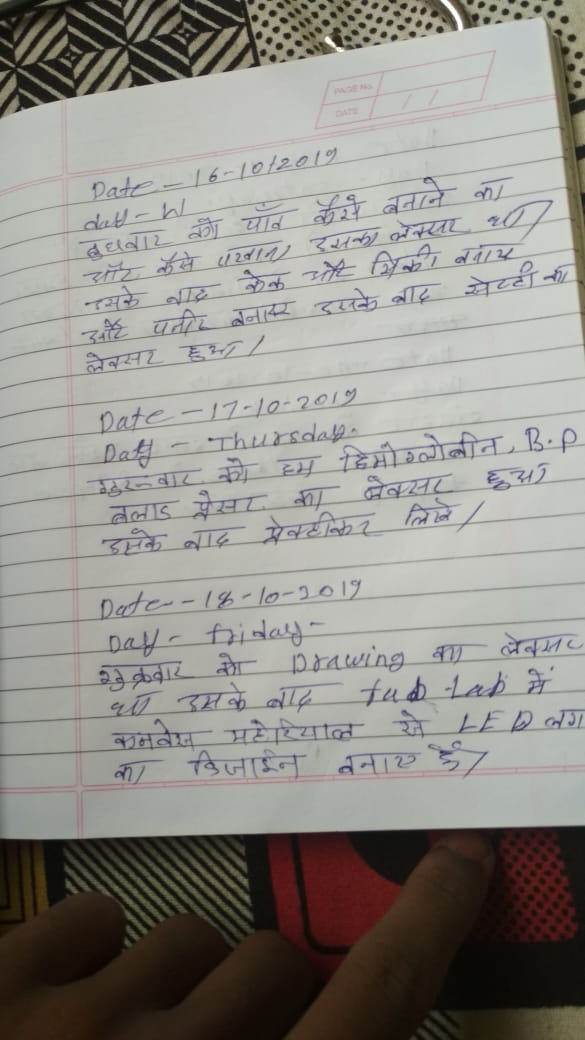 PAGE No.
DATE / /
Date - 16-10/2019
day - W
बुधवार को पाँव कैसे बनाने का
और कैसे उसका लेक्सर था/
उसके बाद केक और चिक्की बनाय
और पनीर बनाया उसके बाद सेफ्टी का
लेक्सर हुआ/
Date - 17-10-2019
Day - Thursday.
गुरुवार को हम हिमोग्लोबीन, B.P
बलाड प्रेसर का लेक्सर हुआ
उसके बाद प्रेक्टीकर लिखे/
Date - 18-10-2019
Day - friday -
शुक्रवार को Drawing का लेक्सर
था उसके बाद fab Lab में
मटेरियाल से LED लग
का डिजाईन बनाए है/